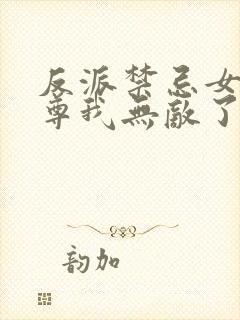 反派禁忌女
尊我無敵了
韵加